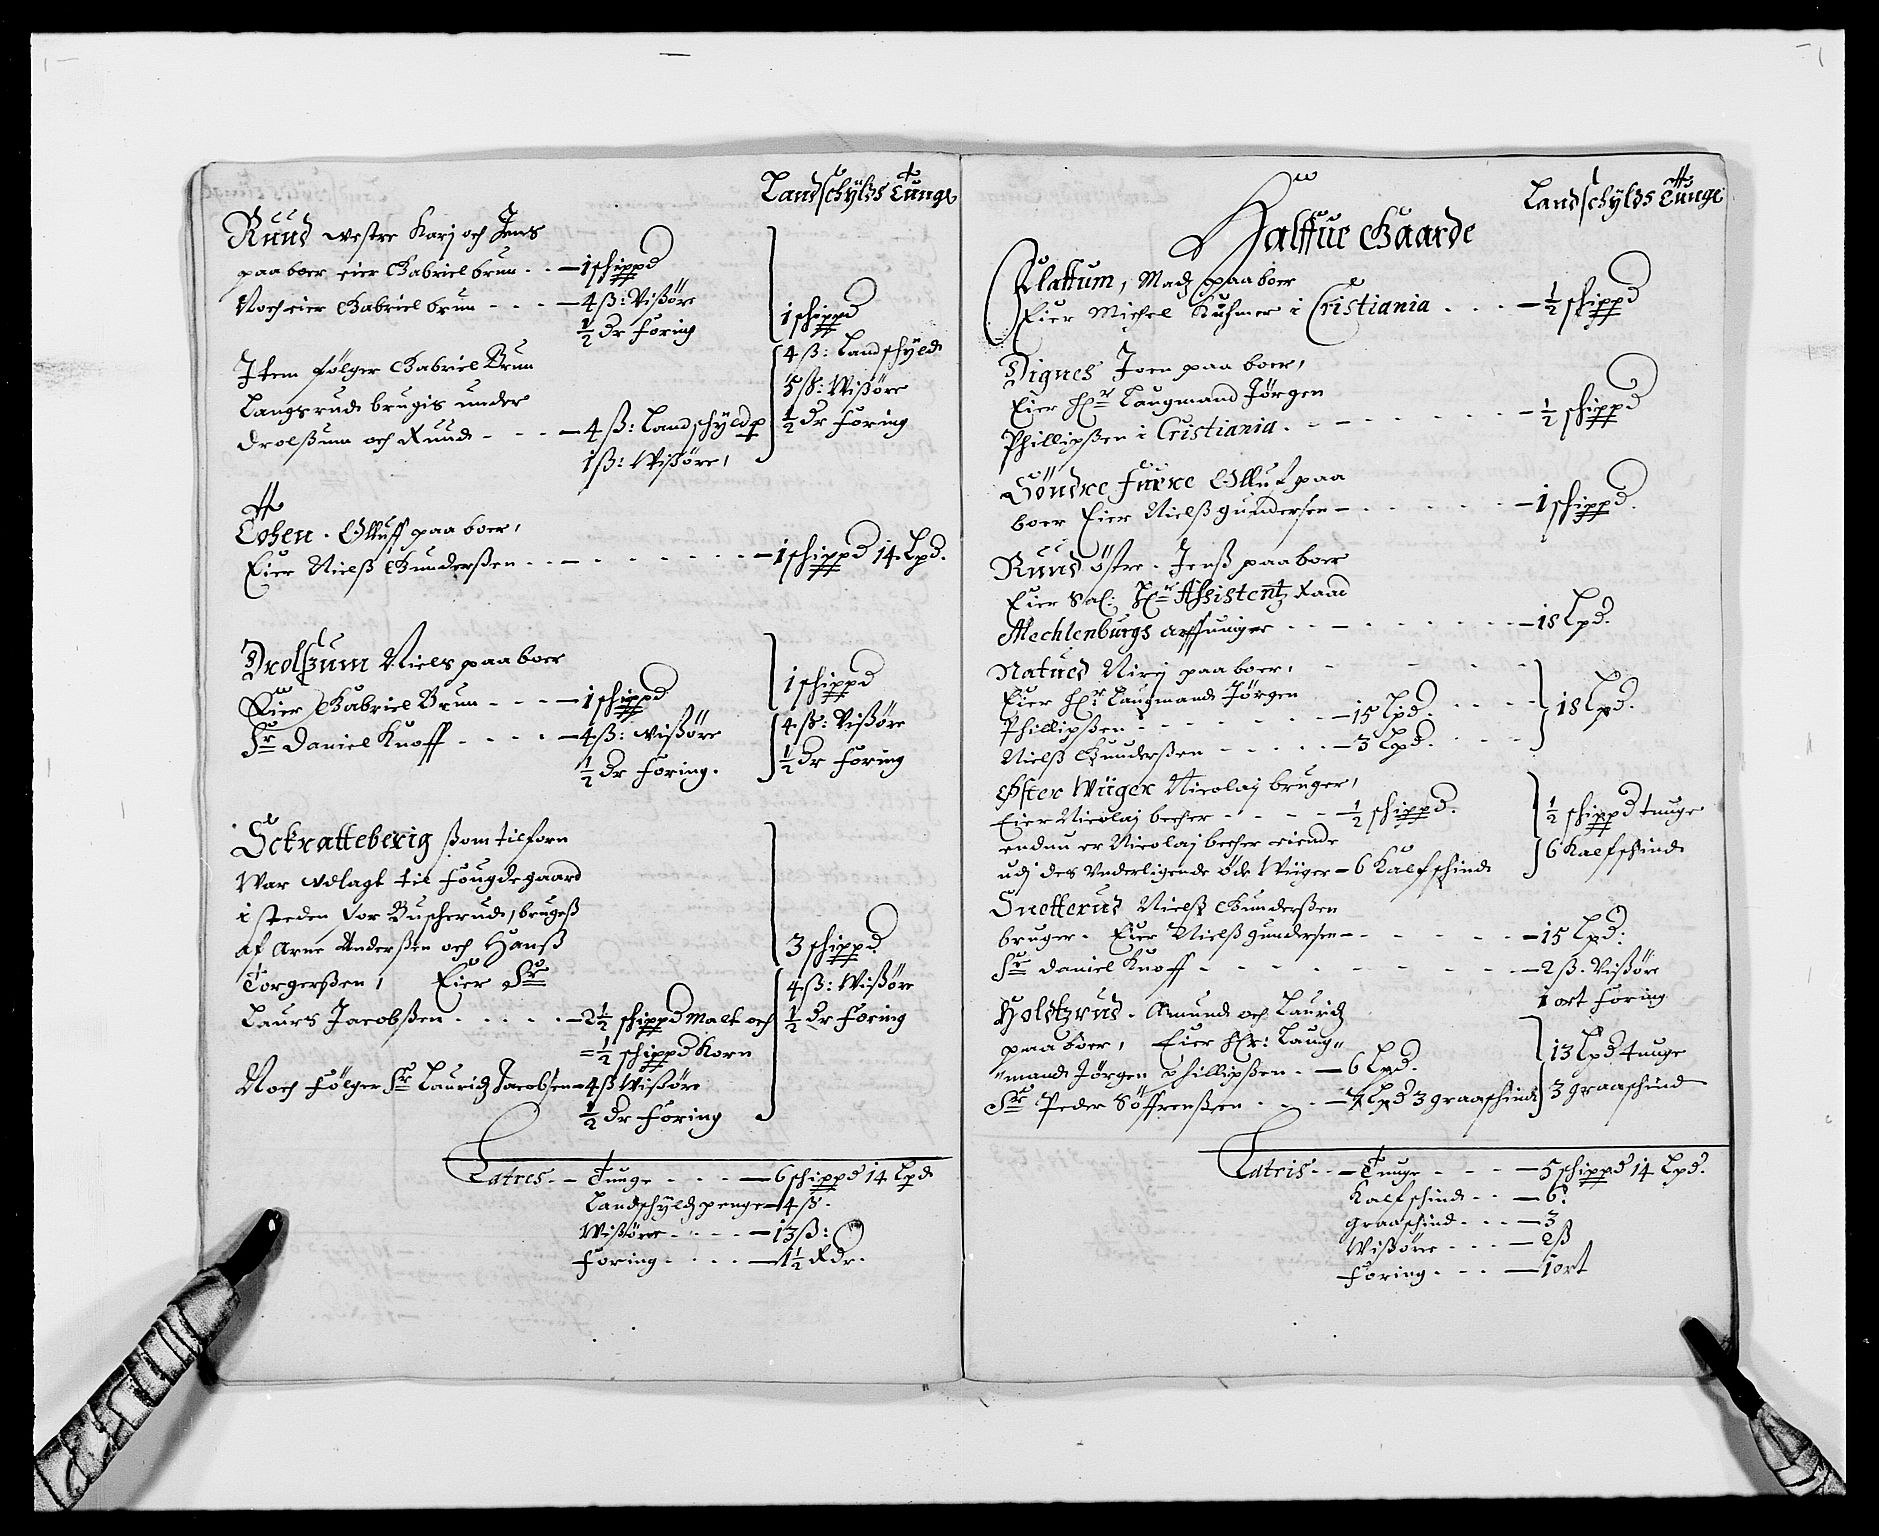 Landschylds Tunge
Ruud westre Karj och Jens
paaboer eier Gabriel brun - - 1 schippd
Noch eier Gabriel brun - - - 4 ß: Wißöre
½ dr foring
1 schippd
4 ß: Landschyld
5 ß: Wißöre
½ dr foring
Item følger Gabriel Brun
Langsrud brugis under
Drolßum och Ruud - - - 4 ß: Landschyld
1 ß: Wißöre,
Tohen. Olluff paaboer,
Eier Nielß Gunderßen - - - - - - - 1 schippd 14 Lpd.
Drolßum Niels paaboer
Eier Gabriel Brun - - - 1 schippd
Sr Daniel Knoff - - - - 4 ß: Wißöre
½ dr foring.
1 schippd
4 ß: Wißöre
½ dr foring
Sckratteberig ßom tilforn
War udlagt til fougdegaard
i steden for Buscherud, brugeß
af Arne Anderßen och Hanß
Torgerßen, Eier Sr
Laurs Jacobßen - - - - - 2½ schippd Malt och
½ schippd Korn
Noch følger Sr Lauridz Jacobsen 4 ß Wißöre
½ dr foring
3 schippd
4 ß: Wißöre
½ dr foring
Latres - - Tunge - - - 6 schippd 14 Lpd
Landschyldz penge 4 ß.
Wißöre - - - - 13 ß:
foring - - - - 1½ Rdr.
Landschylds Tunge
Halffue Gaarde
Plattum, Madz paaboer
Eier Michel Kuhmer i Cristiania - - - ½ schippd
Dignes Joen paaboer,
Eier Hr Laugmand Jørgen
Phillipßen i Cristiania - - - - - - - ½ schippd
Söndre furre Olluf paa
boer Eier Nielß gundersen - - - - - 1 schippd.
Ruud östre. Jenß paaboer
Eier Sal: Hr Assistentz Raad
Mechlenburgs arffuinger - - - - - - - 18 Lpd.
Natued Nirj paaboer,
Eier Hr Laugmand Jørgen
Phillipßen - - - - - - 15 Lpd.
Nielß Gunderßen - - - - 3 Lpd.
18 Lpd.
Öster Wüger Nicolaj bruger,
Eier Nicolaj becher - - - - ½ schippd.
endnu er Nicolaj becher eiende
udj des Underligende öde Wüger - 6 Kalfschind
½ schippd tunge
6 Kalfschind
Snefferud Nielß Gunderßen
bruger. Eier Nielß gundersen - - - - - 15 Lpd:
Sr Daniel Knoff - - - - - - - - 2 ß. Wißöre
1 ort foring
Holdtzrud. Amund och Lauridz
paaboer, Eier Hr: Laug„
„mand Jørgen Phillipßen - - 6 Lpd.
Sr Peder Söffrenßen - - - 7 Lpd 3 graaschind
13 Lpd tunge
3 graaschind
Latris - - Tunge - - - 5 schippd 14 Lpd.
Kalfschind - - 6.
graaschind - - - 3
Wißöre - - - 2 ß
foring - - - 1 ort